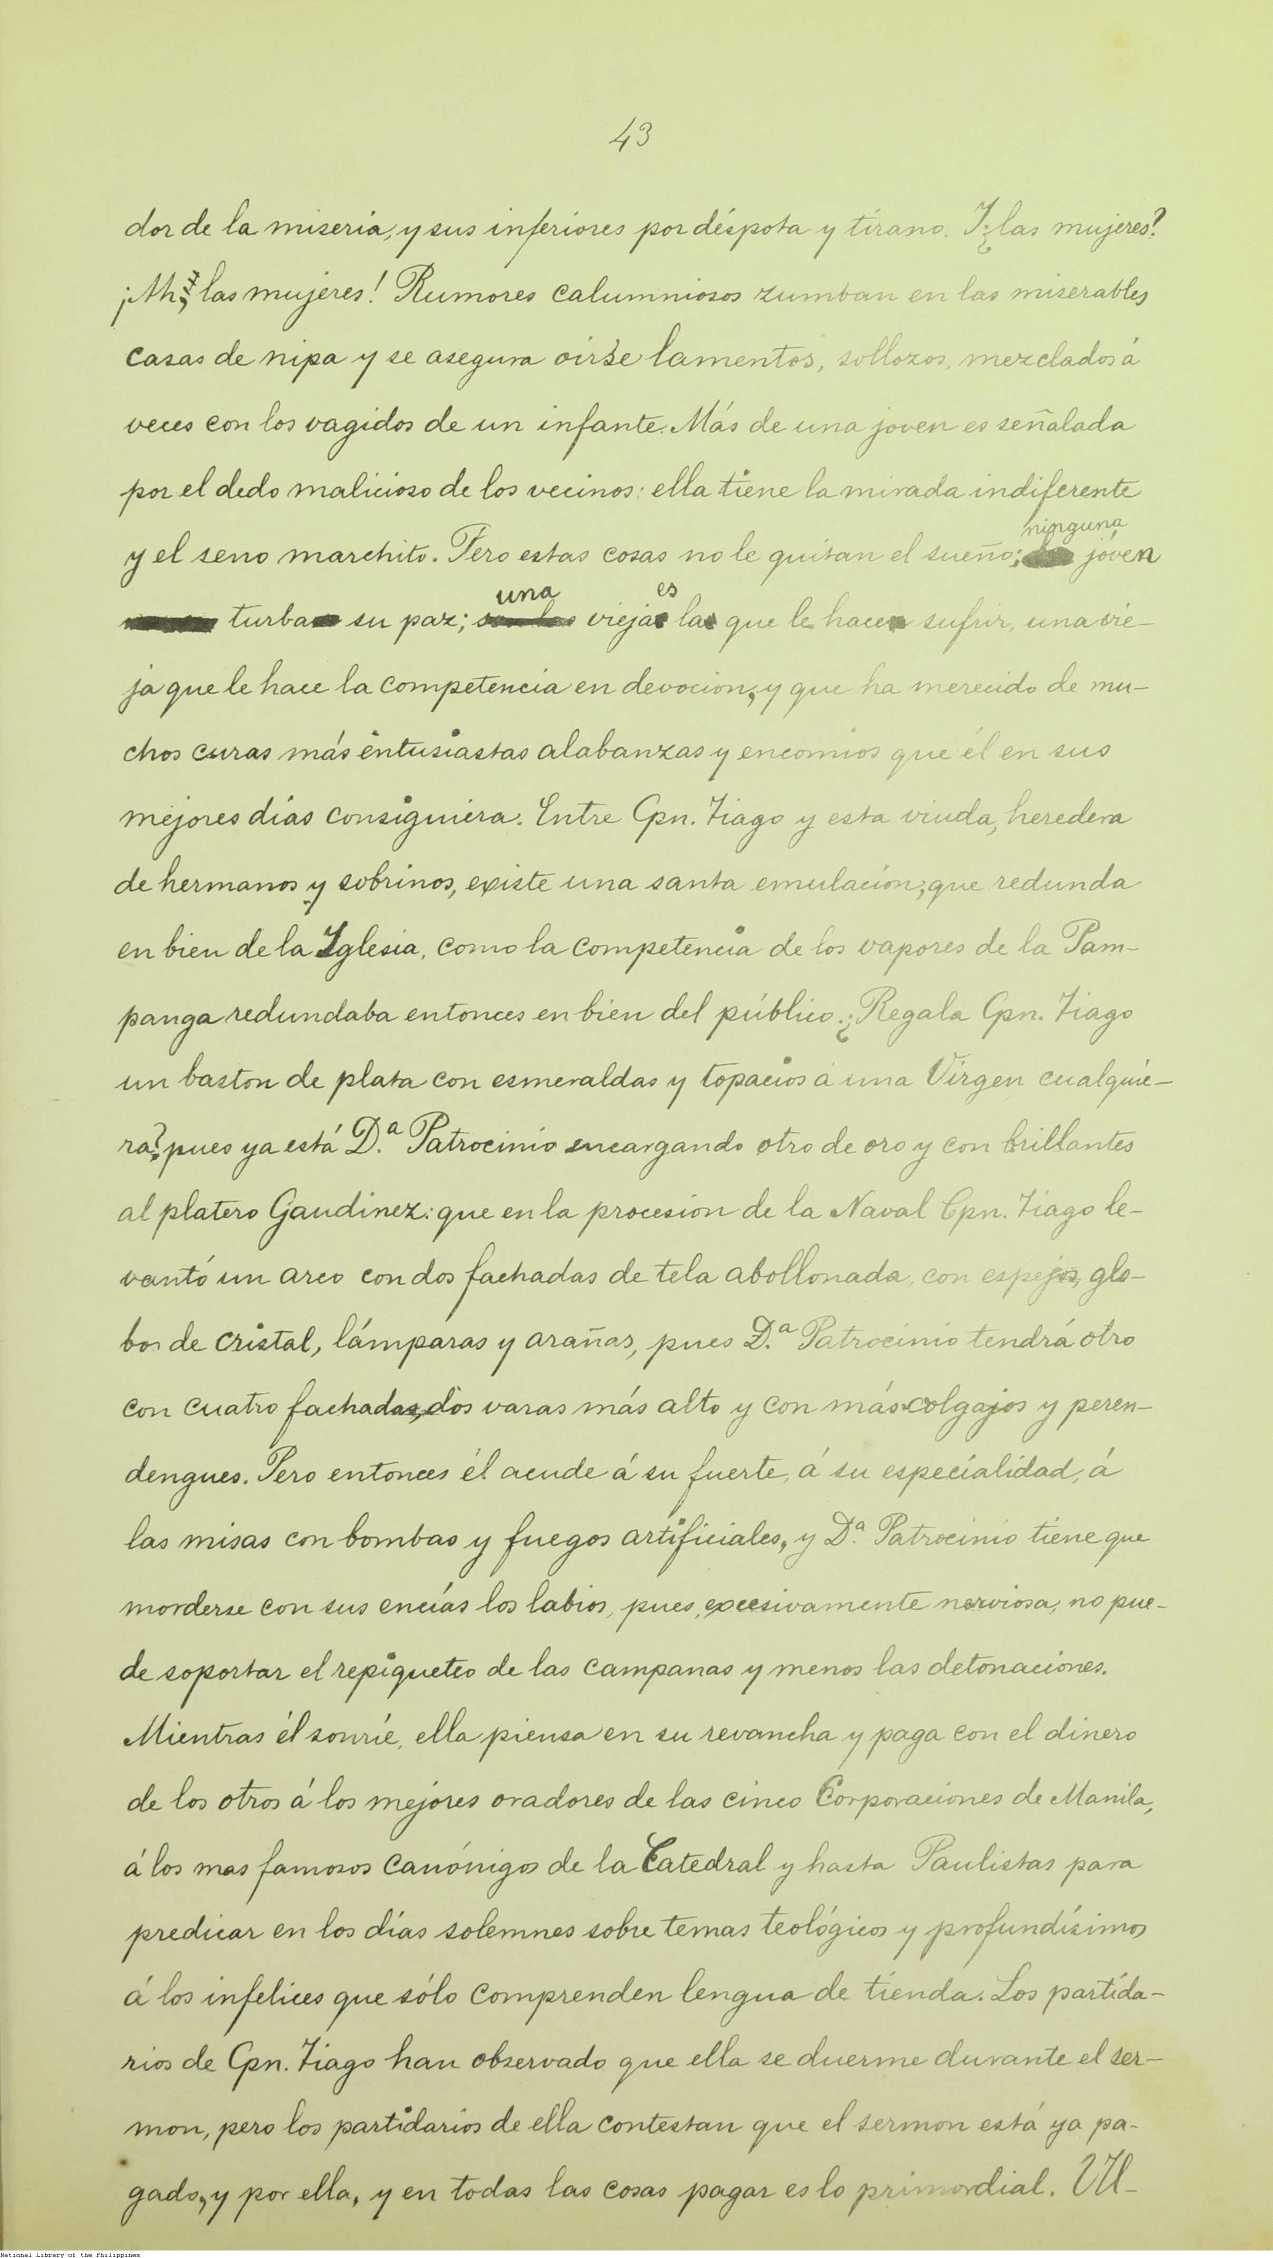 43
dor de la miseria, y sus inferiores por déspota y tirano. Y ¿las mujeres?
¡Ah, las mujeres! Rumores calumniosos zumban en las miserables
casas de nipa y se asegura oirse lamentos, sollozos, mezclados á
veces con los vagidos de un infante. Más de una joven es señalada
por el dedo malicioso de los vecinos: ella tiene la mirada indiferente
y el seno marchito. Pero estas cosas no le quitan el sueño; ninguna joven
turba su paz; una vieja es la que le hace sufrir, una vie-
ja que le hace la competencia en devocion, y que ha merecido de mu-
chos curas más entusiastas alabanzas y encomios que él en sus
mejores días consiguiera. Entre Cpn. Tiago y esta viuda, heredera
de hermanos y sobrinos, existe una santa emulacion, que redunda
en bien de la Iglesia, como la competencia de los vapores de la Pam-
panga redundaba entonces en bien del público. ¿Regala Cpn. Tiago
un baston de plata con esmeraldas y topacios á una Vírgen cualquie-
ra? pues ya está D.ª Patrocinio encargando otro de oro y con brillantes
al platero Gaudinez: que en la procesion de la Naval Cpn. Tiago le-
vantó un arco con dos fachadas de tela abollonada, con espejos, glo-
bos de cristal, lámparas y arañas, pues D.ª Patrocinio tendrá otro
con cuatro fachadas, dos varas más alto y con más colgajos y peren-
dengues. Pero entonces él acude á su fuerte, á su especialidad, á
las misas con bombas y fuegos artificiales, y D.ª Patrocinio tiene que
morderse con sus encías los labios, pues, excesivamente nerviosa, no pue-
de soportar el repiqueteo de las campanas y menos las detonaciones.
Mientras él sonríe, ella piensa en su revancha y paga con el dinero
de los otros á los mejores oradores de las cinco Corporaciones de Manila,
á los mas famosos canónigos de la Catedral y hasta Paulistas para
predicar en los días solemnes sobre temas teológicos y profundísimos
á los infelices que sólo comprenden lengua de tienda. Los partida-
rios de Cpn. Tiago han observado que ella se duerme durante el ser-
mon, pero los partidarios de ella contestan que el sermon está ya pa-
gado, y por ella, y en todas las cosas pagar es lo primordial. Úl-
National Library of the Philippines